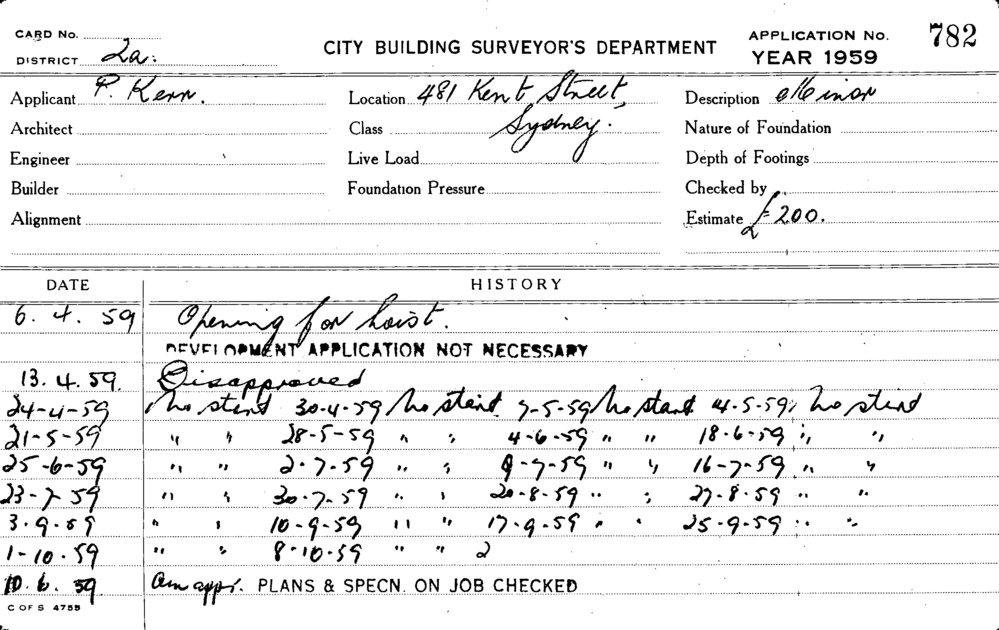 CARD No.
DISTRICT 2a.
CITY BUILDING SURVEYOR'S DEPARTMENT
APPLICATION No. 782
YEAR 1959
Applicant P. Kerr. Location 481 Kent Street, Description Minor
Architect Class Sydney. Nature of Foundation
Engineer Live Load Depth of Footings
Builder Foundation Pressure Checked by
Alignment Estimate £200.
DATE HISTORY
6. 4. 59 Opening for hoist.
DEVELOPMENT APPLICATION NOT NECESSARY
13. 4. 59. Disapproved
24-4-59 No start 30-4-59 No start 7-5-59 No start 14-5-59, No start
21-5-59 " " 28-5-59 " " 4-6-59 " " 18-6-59 " "
25-6-59 " " 2-7-59 " " 9-7-59 " " 16-7-59 " "
23-7-59 " " 30-7-59 " " 20-8-59 " " 27-8-59 " "
3-9-59 " " 10-9-59 " " 17-9-59 " " 25-9-59 " "
1-10-59 " " 8-10-59 " " 2
10. 6. 59 Am appr. PLANS & SPECN. ON JOB CHECKED
C OF S 4755